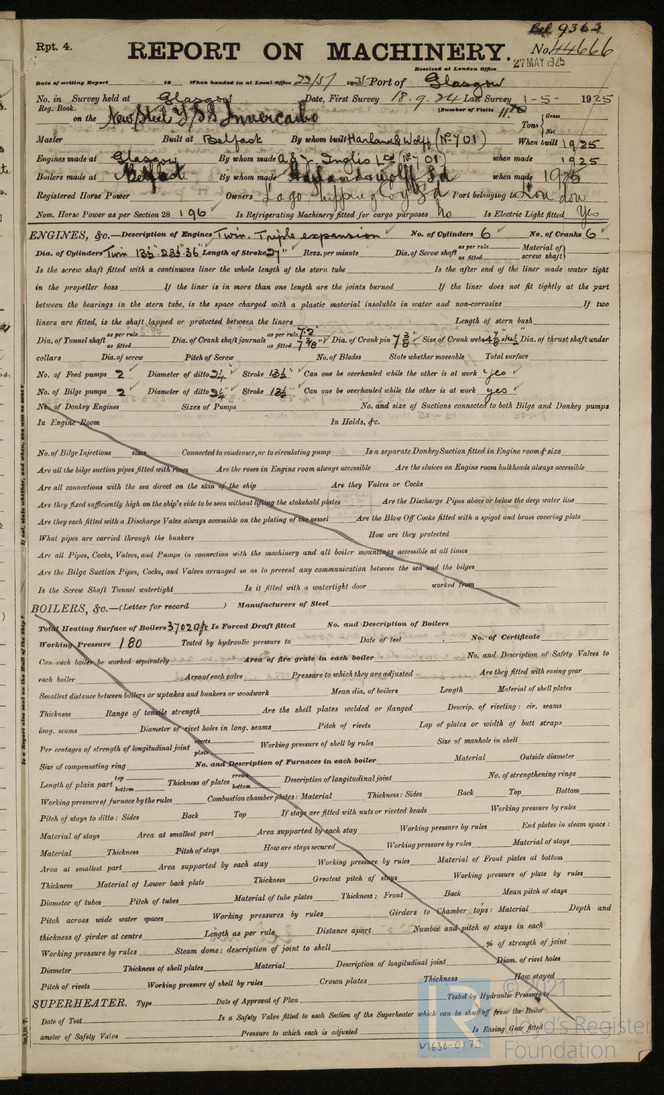 Bel 9363
Rpt. 4. REPORT ON MACHINERY. No. 44666
Received at London Office 27 MAY 1925
Date of writing Report 19 When handed in at Local Office 22/5/ 1925 Port of Glasgow
No. in Survey held at Glasgow Date, First Survey 18.9.24 Last Survey 1-5- 1925
Reg. Book. (Number of Visits
on the New Steel T.S.S Invercaibo Tons Gross Net
Master Built at Belfast By whom built Harland & Wolff (No 701) When built 1925
Engines made at Glasgow By whom made A & J Inglis Ld (No 701) when made 1925
Boilers made at Belfast By whom made Harland & Wolff Ld when made 1925
Registered Horse Power Owners Lago Shipping Coy Ld Port belonging to London
Nom. Horse Power as per Section 28 196 Is Refrigerating Machinery fitted for cargo purposes No Is Electric Light fitted Yes
ENGINES, &c.—Description of Engines Twin. Triple expansion No. of Cylinders 6 No. of Cranks 6
Dia. of Cylinders Twin 13½" 23½" 36" Length of Stroke 27" Revs. per minute Dia. of Screw shaft as per rule as fitted Material of screw shaft
Is the screw shaft fitted with a continuous liner the whole length of the stern tube Is the after end of the liner made water tight
in the propeller boss If the liner is in more than one length are the joints burned If the liner does not fit tightly at the part
between the bearings in the stern tube, is the space charged with a plastic material insoluble in water and non-corrosive If two
liners are fitted, is the shaft lapped or protected between the liners Length of stern bush
Dia. of Tunnel shaft as per rule as fitted Dia. of Crank shaft journals as per rule 7.2" as fitted 7⅜" Dia. of Crank pin 7⅜" Size of Crank webs Dia. of thrust shaft under
collars Dia. of screw Pitch of Screw No. of Blades State whether moveable Total surface
No. of Feed pumps 2 Diameter of ditto 2¼" Stroke 13½" Can one be overhauled while the other is at work yes
No. of Bilge pumps 2 Diameter of ditto 2¼" Stroke 13½" Can one be overhauled while the other is at work yes
No. of Donkey Engines Sizes of Pumps No. and size of Suctions connected to both Bilge and Donkey pumps
In Engine Room In Holds, &c.
No. of Bilge Injections sizes Connected to condenser, or to circulating pump Is a separate Donkey Suction fitted in Engine room & size
Are all the bilge suction pipes fitted with roses Are the roses in Engine room always accessible Are the sluices on Engine room bulkheads always accessible
Are all connections with the sea direct on the skin of the ship Are they Valves or Cocks
Are they fixed sufficiently high on the ship's side to be seen without lifting the stokehold plates Are the Discharge Pipes above or below the deep water line
Are they each fitted with a Discharge Valve always accessible on the plating of the vessel Are the Blow Off Cocks fitted with a spigot and brass covering plate
What pipes are carried through the bunkers How are they protected
Are all Pipes, Cocks, Valves, and Pumps in connection with the machinery and all boiler mountings accessible at all times
Are the Bilge Suction Pipes, Cocks, and Valves arranged so as to prevent any communication between the sea and the bilges
Is the Screw Shaft Tunnel watertight Is it fitted with a watertight door worked from
BOILERS, &c.—(Letter for record ) Manufacturers of Steel
Total Heating Surface of Boilers 3702 □ft Is Forced Draft fitted No. and Description of Boilers
Working Pressure 180 Tested by hydraulic pressure to Date of test No. of Certificate
Can each boiler be worked separately Area of fire grate in each boiler No. and Description of Safety Valves to
each boiler Area of each valve Pressure to which they are adjusted Are they fitted with easing gear
Smallest distance between boilers or uptakes and bunkers or woodwork Mean dia. of boilers Length Material of shell plates
Thickness Range of tensile strength Are the shell plates welded or flanged Descrip. of riveting: cir. seams
long. seams Diameter of rivet holes in long. seams Pitch of rivets Lap of plates or width of butt straps
Per centages of strength of longitudinal joint rivets plate Working pressure of shell by rules Size of manhole in shell
Size of compensating ring No. and Description of Furnaces in each boiler Material Outside diameter
Length of plain part top bottom Thickness of plates crown bottom Description of longitudinal joint No. of strengthening rings
Working pressure of furnace by the rules Combustion chamber plates: Material Thickness: Sides Back Top Bottom
Pitch of stays to ditto: Sides Back Top If stays are fitted with nuts or riveted heads Working pressure by rules
Material of stays Area at smallest part Area supported by each stay Working pressure by rules End plates in steam space:
Material Thickness Pitch of stays How are stays secured Working pressure by rules Material of stays
Area at smallest part Area supported by each stay Working pressure by rules Material of Front plates at bottom
Thickness Material of Lower back plate Thickness Greatest pitch of stays Working pressure of plate by rules
Diameter of tubes Pitch of tubes Material of tube plates Thickness: Front Back Mean pitch of stays
Pitch across wide water spaces Working pressures by rules Girders to Chamber tops: Material Depth and
thickness of girder at centre Length as per rule Distance apart Number and pitch of stays in each
Working pressure by rules Steam dome: description of joint to shell % of strength of joint
Diameter Thickness of shell plates Material Description of longitudinal joint Diam. of rivet holes
Pitch of rivets Working pressure of shell by rules Crown plates Thickness How stayed
SUPERHEATER. Type Date of Approval of Plan Tested by Hydraulic Pressure to
Date of Test Is a Safety Valve fitted to each Section of the Superheater which can be shut off from the Boiler
ameter of Safety Valve Pressure to which each is adjusted Is Easing Gear fitted
© 2021
Lloyd's Register
Foundation
V1636-0170